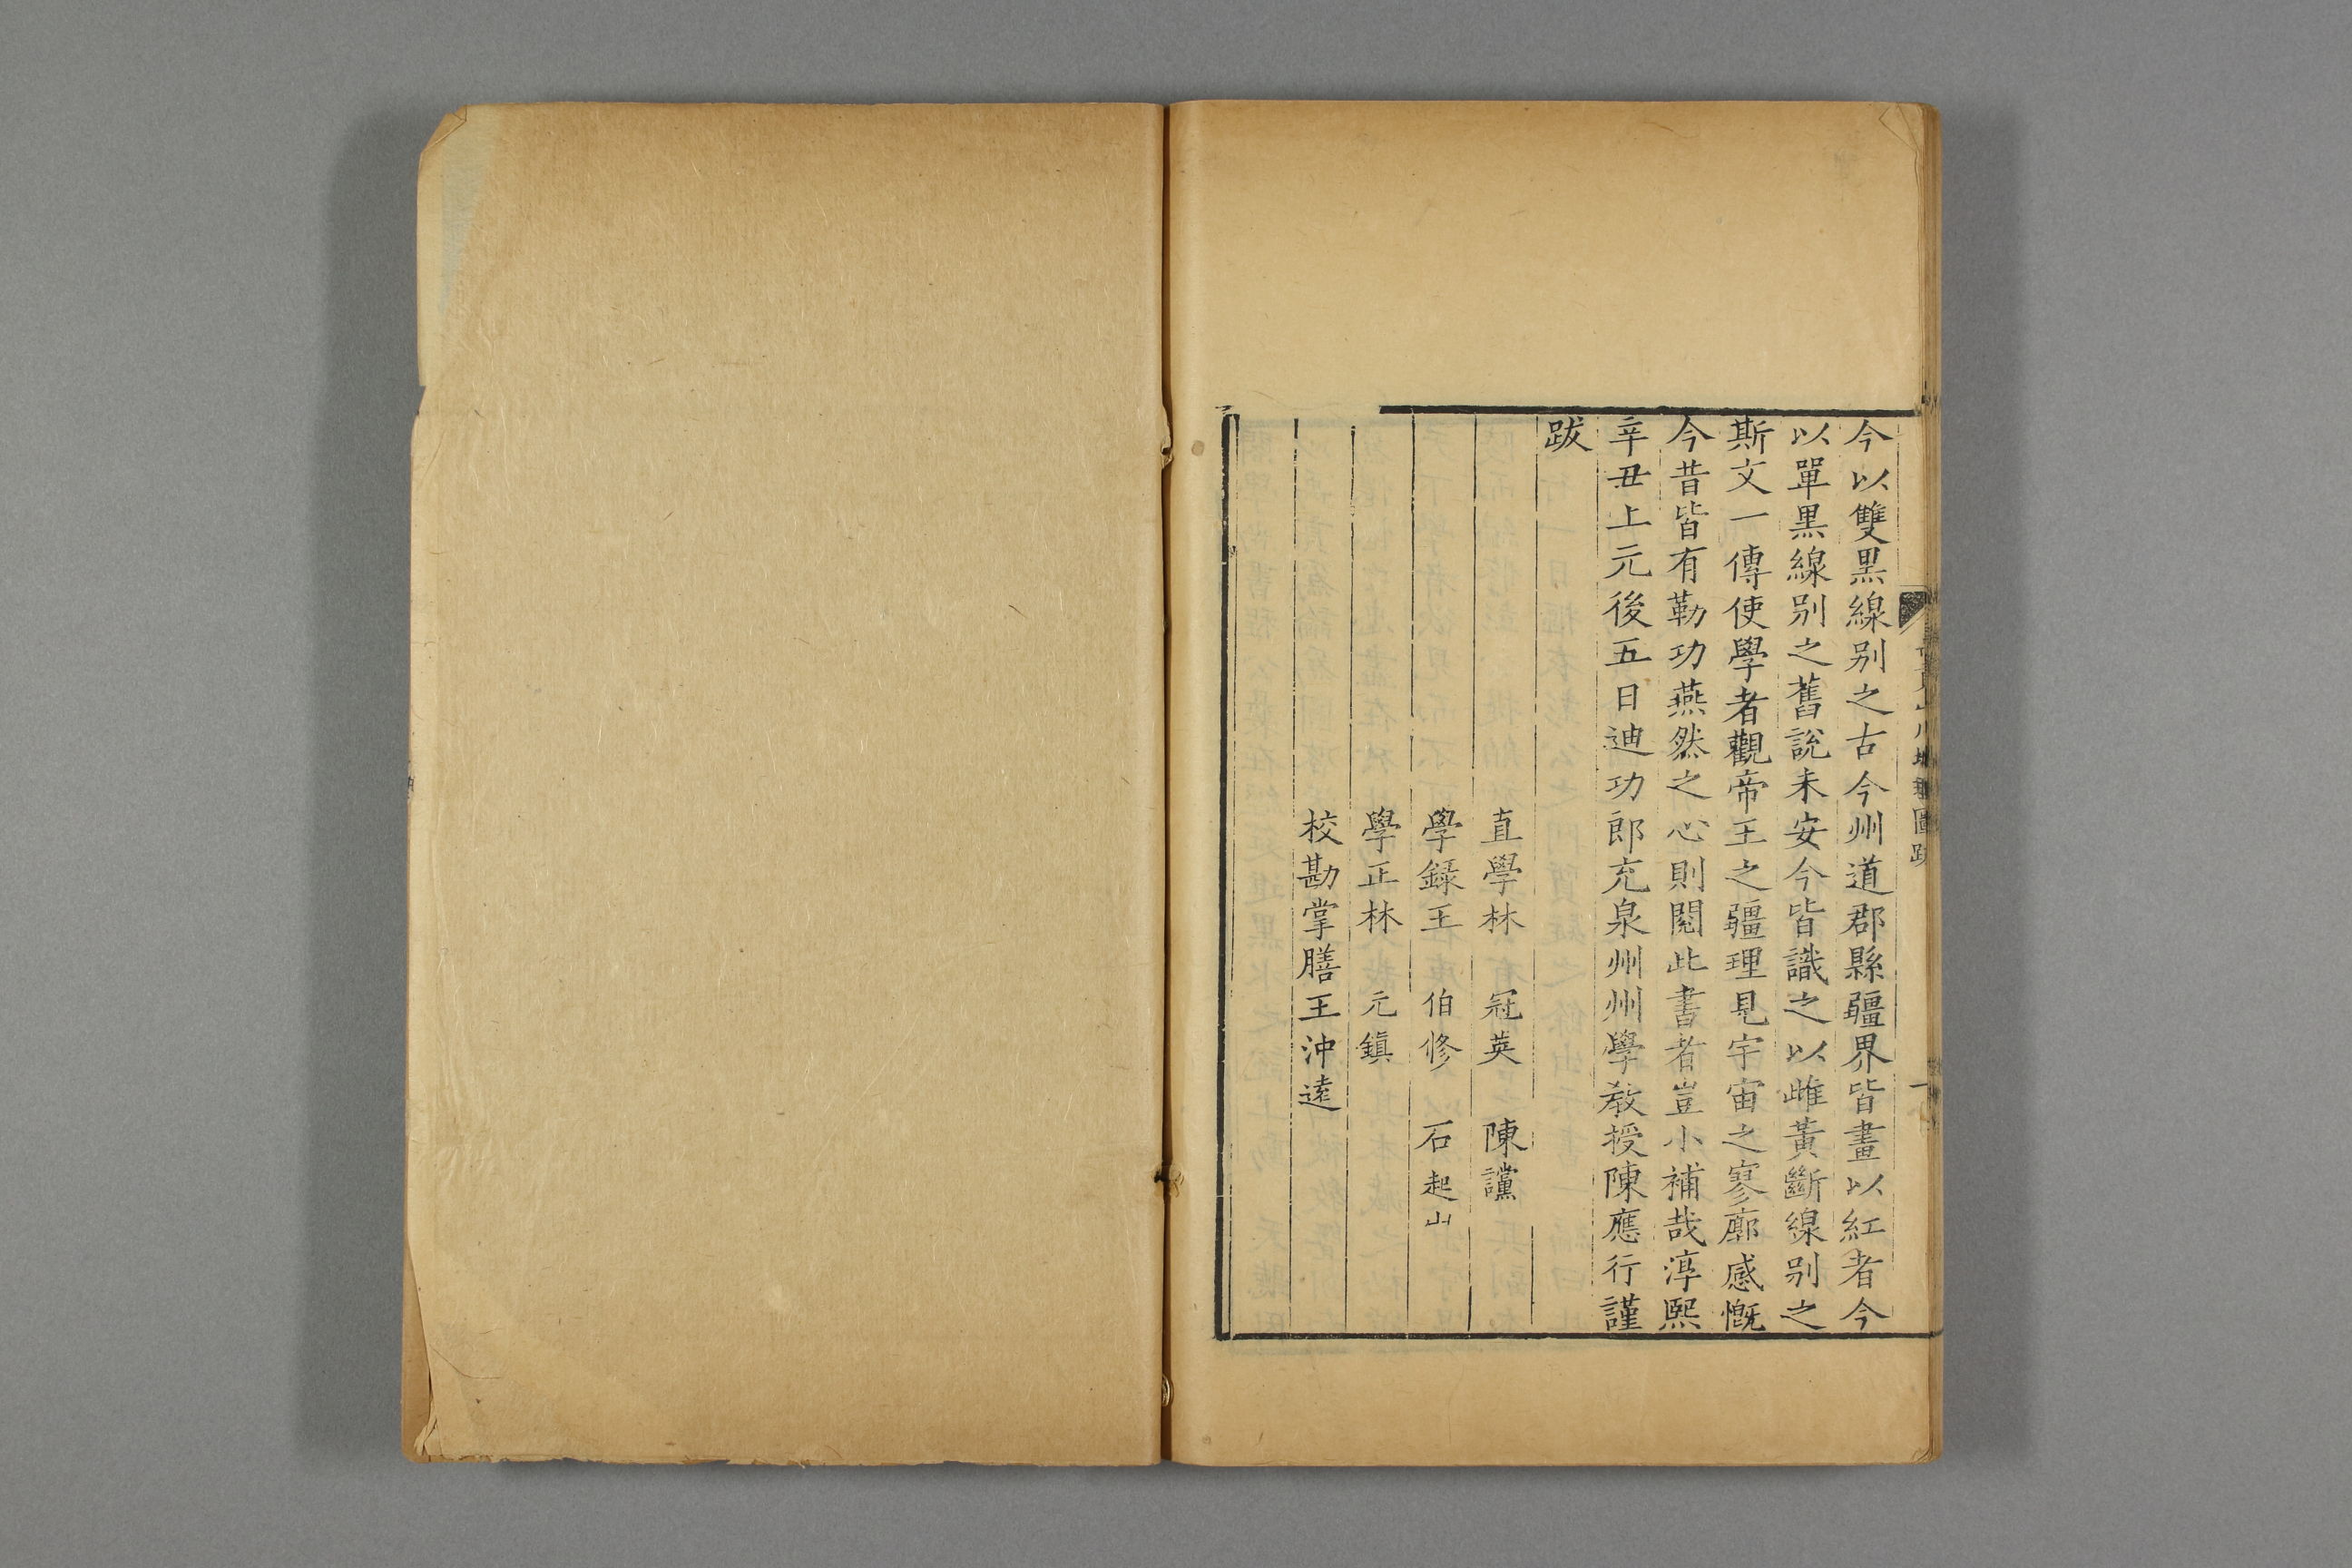 今以雙黑線别之古今州道郡縣疆界皆畫以紅者今
以單黑線别之舊說未安今皆識之以雌黃斷線别之
斯文一傳使學者觀帝王之疆理見宇宙之寥廓感慨
今昔皆有勒功燕然之心則閱此書者豈小補哉淳熙
辛丑上元後五日迪功郎充泉州州學教授陳應行謹
跋
直學林 冠英 陳讜
學録王 伯修 石起山
學正林 元鎮
校勘掌膳王沖遠